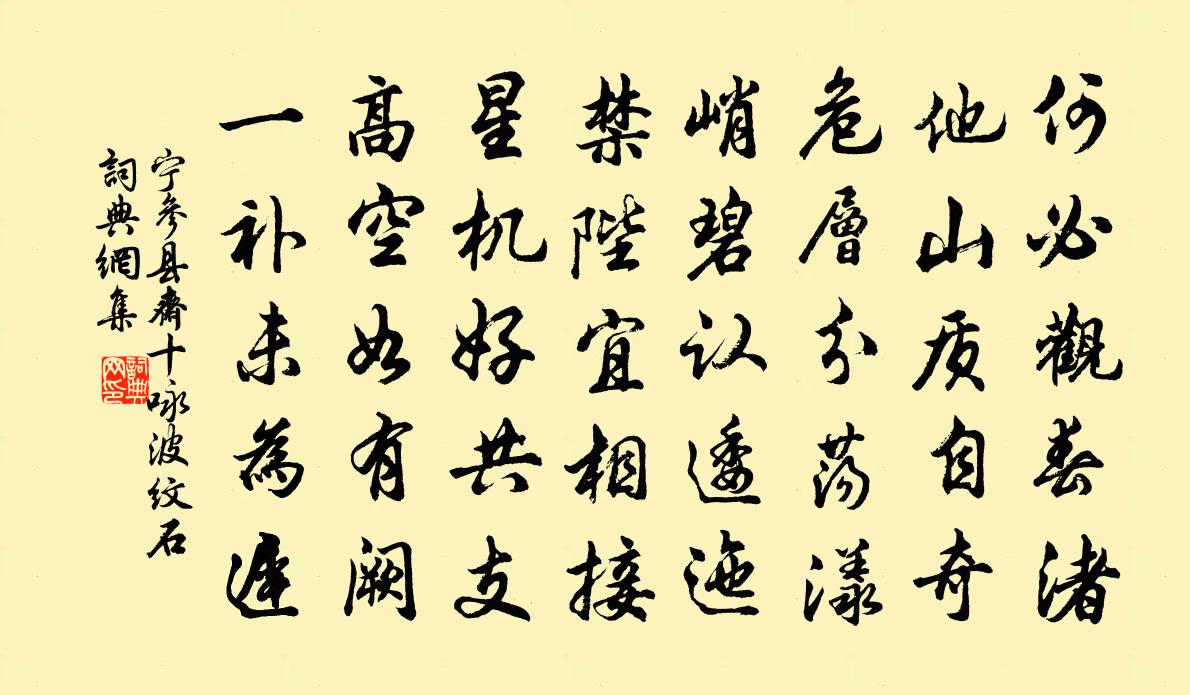 何必觀春渚
他山质自奇
危層分荡漾
峭碧认逶迤
禁陛宜相接
星机好共支
高空如有阙
一补未為遲
宁参县斋十咏波纹石
詞典網集
詞典网印